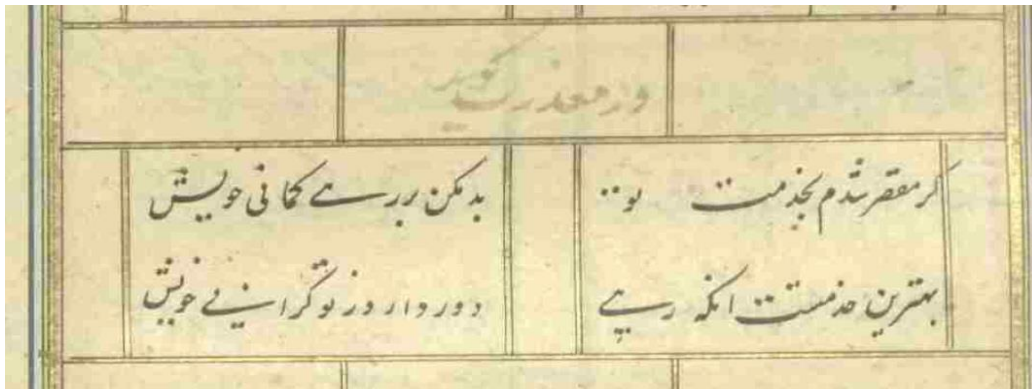 در معذرت گوید
گر مقصر شدم بخدمت تو
بد مکن بر رهی کمانی خویش
بهترین خدمتست انکه رهی
دور دارد ز تو گرانی خویش